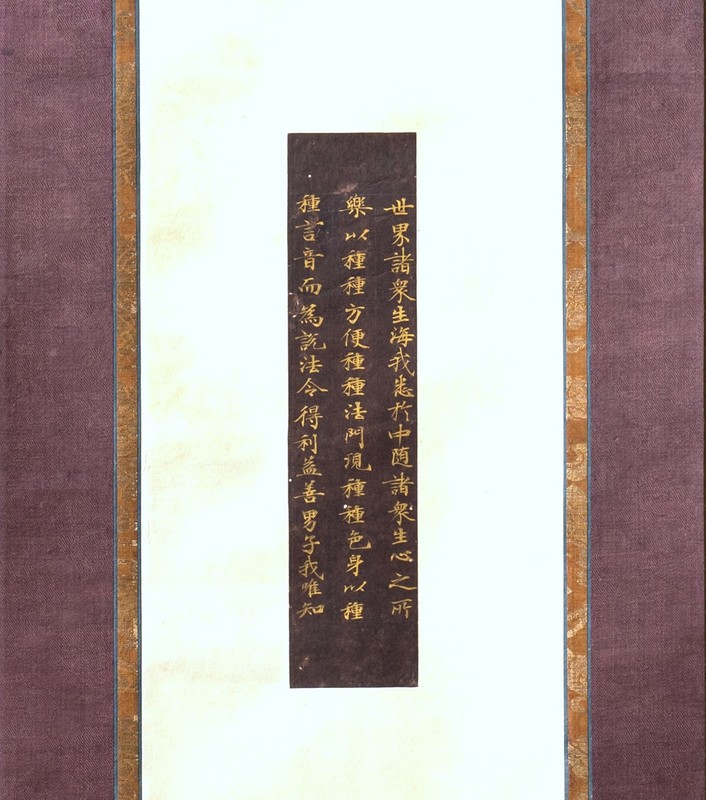 世界諸衆生海我悉於中随諸衆生心之所
樂以種種方便種種法門現種種色身以種
種言音而為説法令得利益善男子我唯知